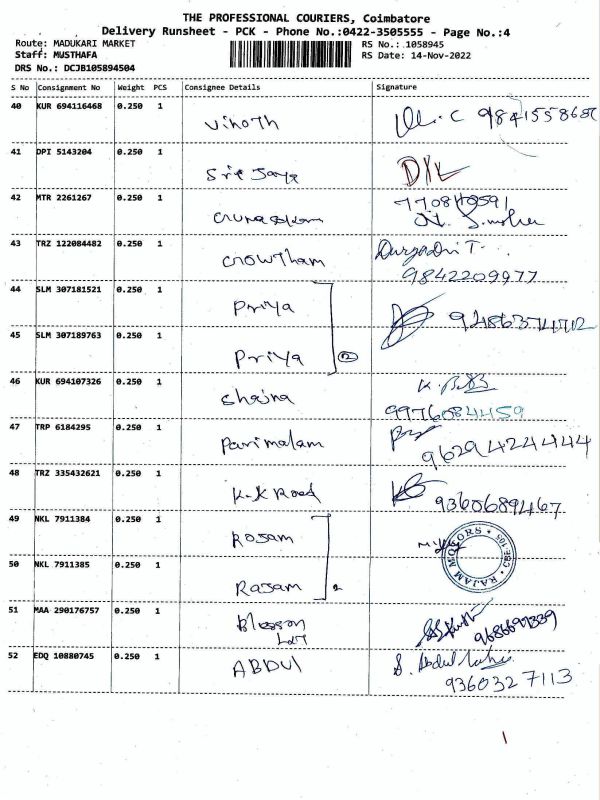 THE PROFESSIONAL COURIERS, Coimbatore
Delivery Runsheet - PCK - Phone No.:0422-3505555 - Page No.:4
Route: MADUKARI MARKET
RS No.:1058945
Staff: MUSTHAFA
RS Date: 14-Nov-2022
DRS No.: DCJB105894504
S No Consignment No Weight PCS Consignee Details Signature
40 KUR 694116468 0.250 1 Vinoth
41 DPI 5143204 0.250 1 Sri Jaya
42 MTR 2261267 0.250 1
43 TRZ 122084482 0.250 1 Gowtham
9842209977
44 SLM 307181521 0.250 1 Priya
45 SLM 307189763 0.250 1 Priya
46 KUR 694107326 0.250 1 Shaina
9976084459
47 TRP 6184295 0.250 1 Parimalam
9629424444
48 TRZ 335432621 0.250 1 K.K Road
9360689467
49 NKL 7911384 0.250 1 Rasam
RAJAM MOTORS
50 NKL 7911385 0.250 1 Rasam 2
51 MAA 290176757 0.250 1 Blesson
52 EDQ 10880745 0.250 1 ABDUL S. Abdul
9360327113